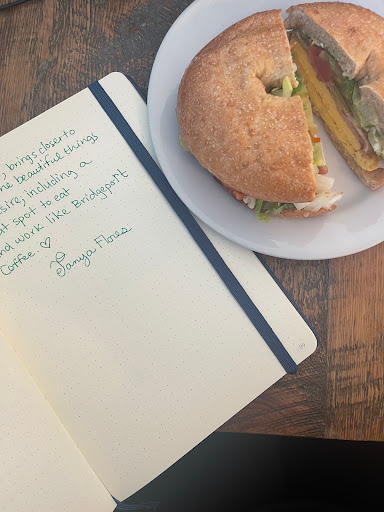 , brings closer to
he beautiful things
esire, including a
at spot to eat
nd work like Bridgeport
Coffee. ♡
Tanya Flores